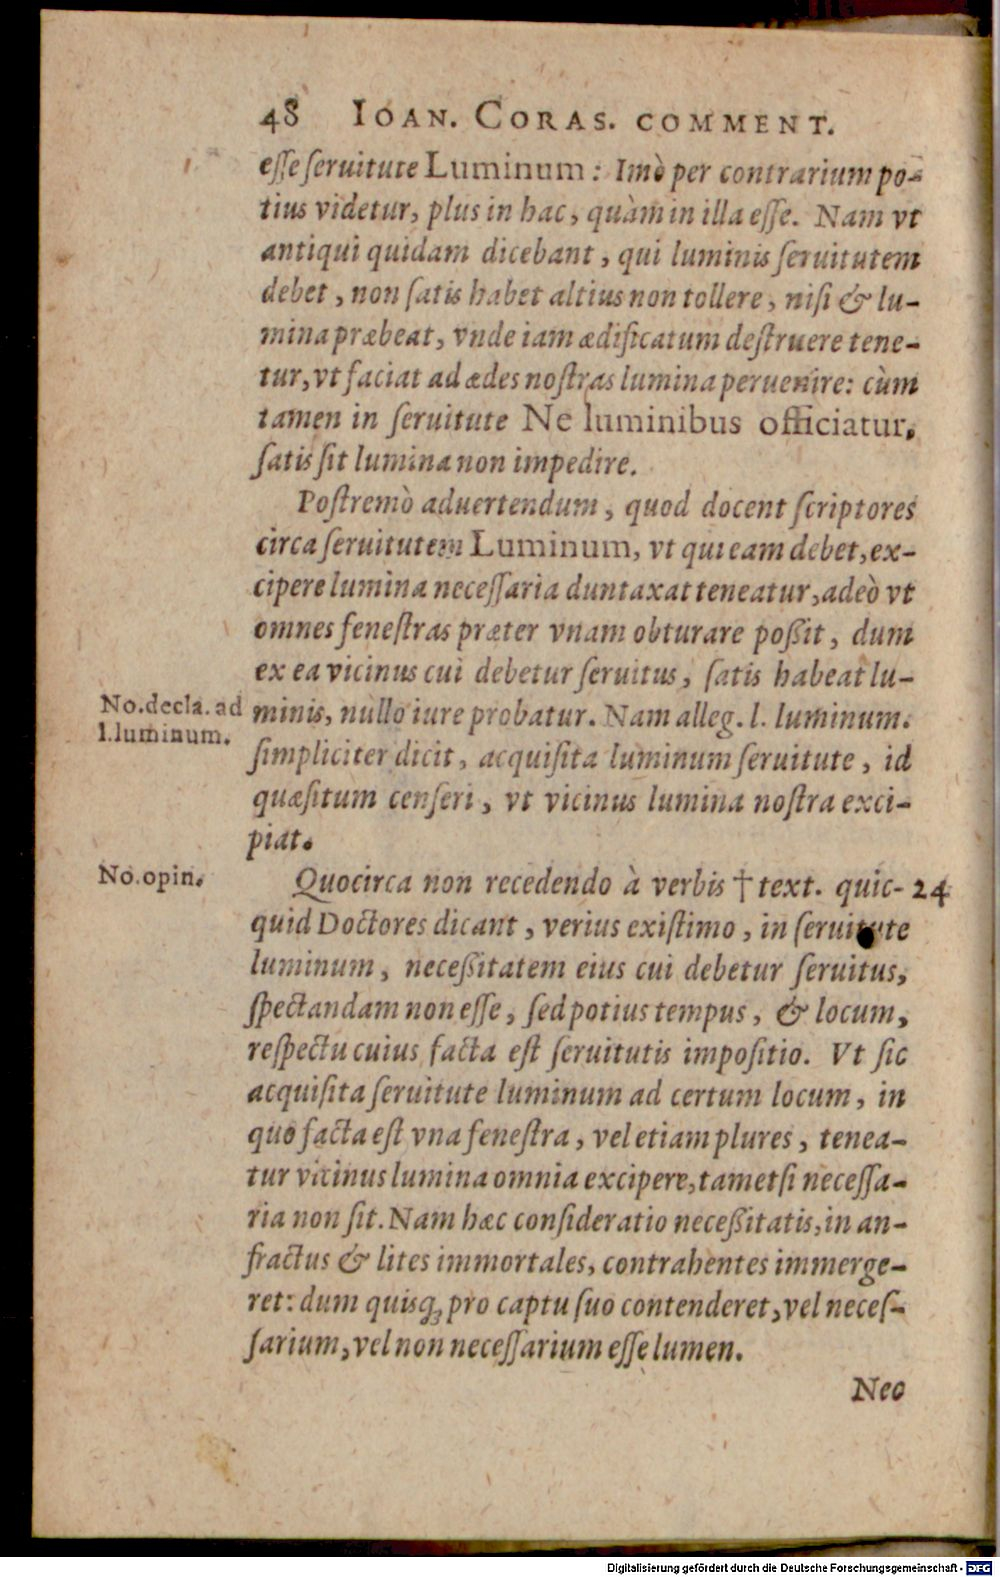 48 IOAN. CORAS. COMMENT.
eſſe ſeruitute Luminum: Imò per contrarium po-
tius videtur, plus in hac, quàm in illa eſſe. Nam vt
antiqui quidam dicebant, qui luminis ſeruitutem
debet, non ſatis habet altius non tollere, niſi & lu-
mina præbeat, vnde iam ædificatum deſtruere tene-
tur, vt faciat ad ædes noſtras lumina peruenire: cùm
tamen in ſeruitute Ne luminibus officiatur,
ſatis ſit lumina non impedire.
Poſtremò aduertendum, quod docent ſcriptores
circa ſeruitutem Luminum, vt qui eam debet, ex-
cipere lumina neceſſaria duntaxat teneatur, adeò vt
omnes feneſtras præter vnam obturare poßit, dum
ex ea vicinus cui debetur ſeruitus, ſatis habeat lu-
No.decla. ad
l.luminum.
minis, nullo iure probatur. Nam alleg. l. luminum.
ſimpliciter dicit, acquiſita luminum ſeruitute, id
quæſitum cenſeri, vt vicinus lumina noſtra exci-
piat.
No.opin.
Quocirca non recedendo à verbis † text. quic- 24
quid Doctores dicant, verius exiſtimo, in ſeruitute
luminum, neceßitatem eius cui debetur ſeruitus,
ſpectandam non eſſe, ſed potius tempus, & locum,
reſpectu cuius facta eſt ſeruitutis impoſitio. Vt ſic
acquiſita ſeruitute luminum ad certum locum, in
quo facta eſt vna feneſtra, vel etiam plures, tenea-
tur vicinus lumina omnia excipere, tametſi neceſſa-
ria non ſit. Nam hæc conſideratio neceßitatis, in an-
fractus & lites immortales, contrahentes immerge-
ret: dum quisq; pro captu ſuo contenderet, vel neceſ-
ſarium, vel non neceſſarium eſſe lumen.
Nec
Digitalisierung gefördert durch die Deutsche Forschungsgemeinschaft - DFG